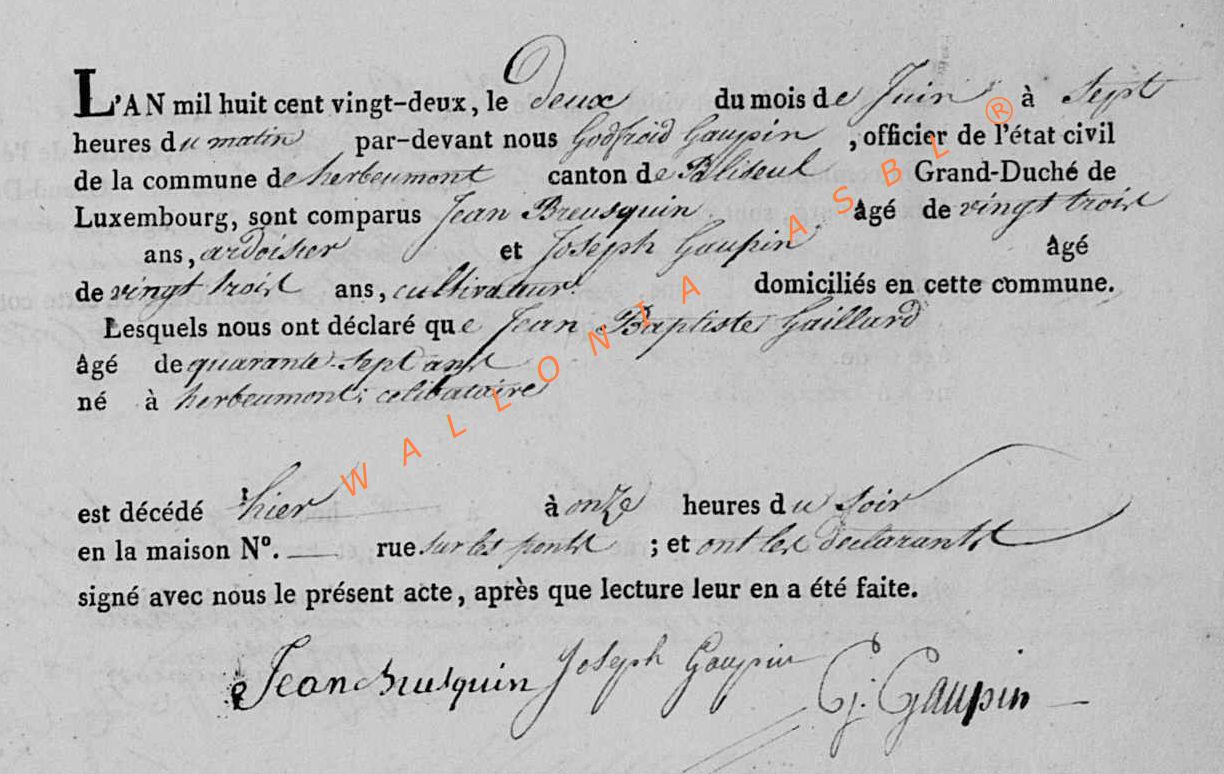 L'AN mil huit cent vingt-deux, le deux du mois de Juin à Sept
heures du matin par-devant nous Godfroid Gaupin, officier de l'état civil
de la commune de herbeumont canton de Paliseul Grand-Duché de
Luxembourg, sont comparus Jean Breusquin âgé de vingt trois
ans, ardoisier et Joseph Gaupin âgé
de vingt trois ans, cultivateur domiciliés en cette commune.
Lesquels nous ont déclaré que Jean Baptiste Gaillard
âgé de quarante-sept ans
né à herbeumont; celibataire
est décédé hier à onze heures du soir
en la maison N°. — rue sur les ponts ; et ont les declarants
signé avec nous le présent acte, après que lecture leur en a été faite.
Jean brusquin Joseph Gaupin G: Gaupin
WALLONIA ASBL ®